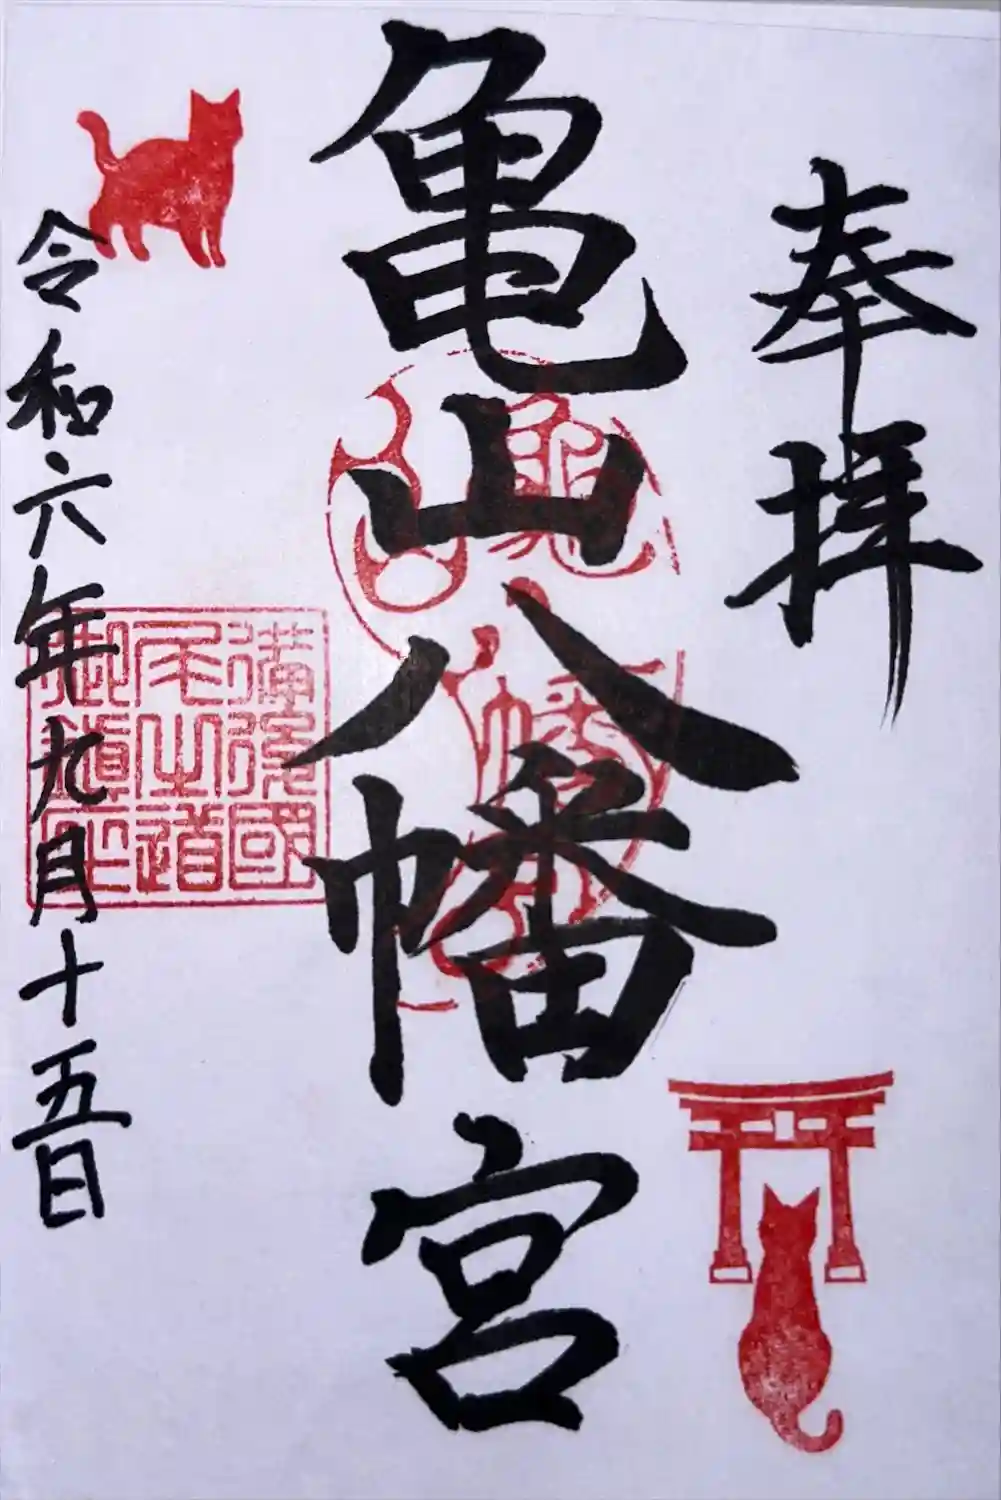 奉拝
亀山八幡宮
備後國
尾之道
御鎮座
令和六年九月十五日